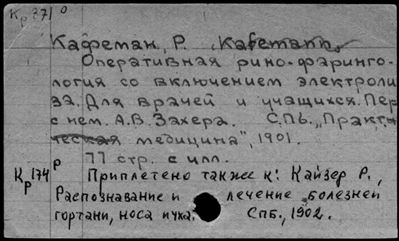 Кр 371 0
Кафеман, Р. Kafemann
Оперативная рино-фаринго-
логия со включением электроли
за. Для врачей и учащихся. Пер
с нем. А.В. Закера. СПб. „Практи
ческая медицина", 1901.
77 стр. с илл.
Кр 174 р Приплетено также к: Кайзер Р.,
Распознавание и лечение болезней
гортани, носа и уха. СПб., 1902.